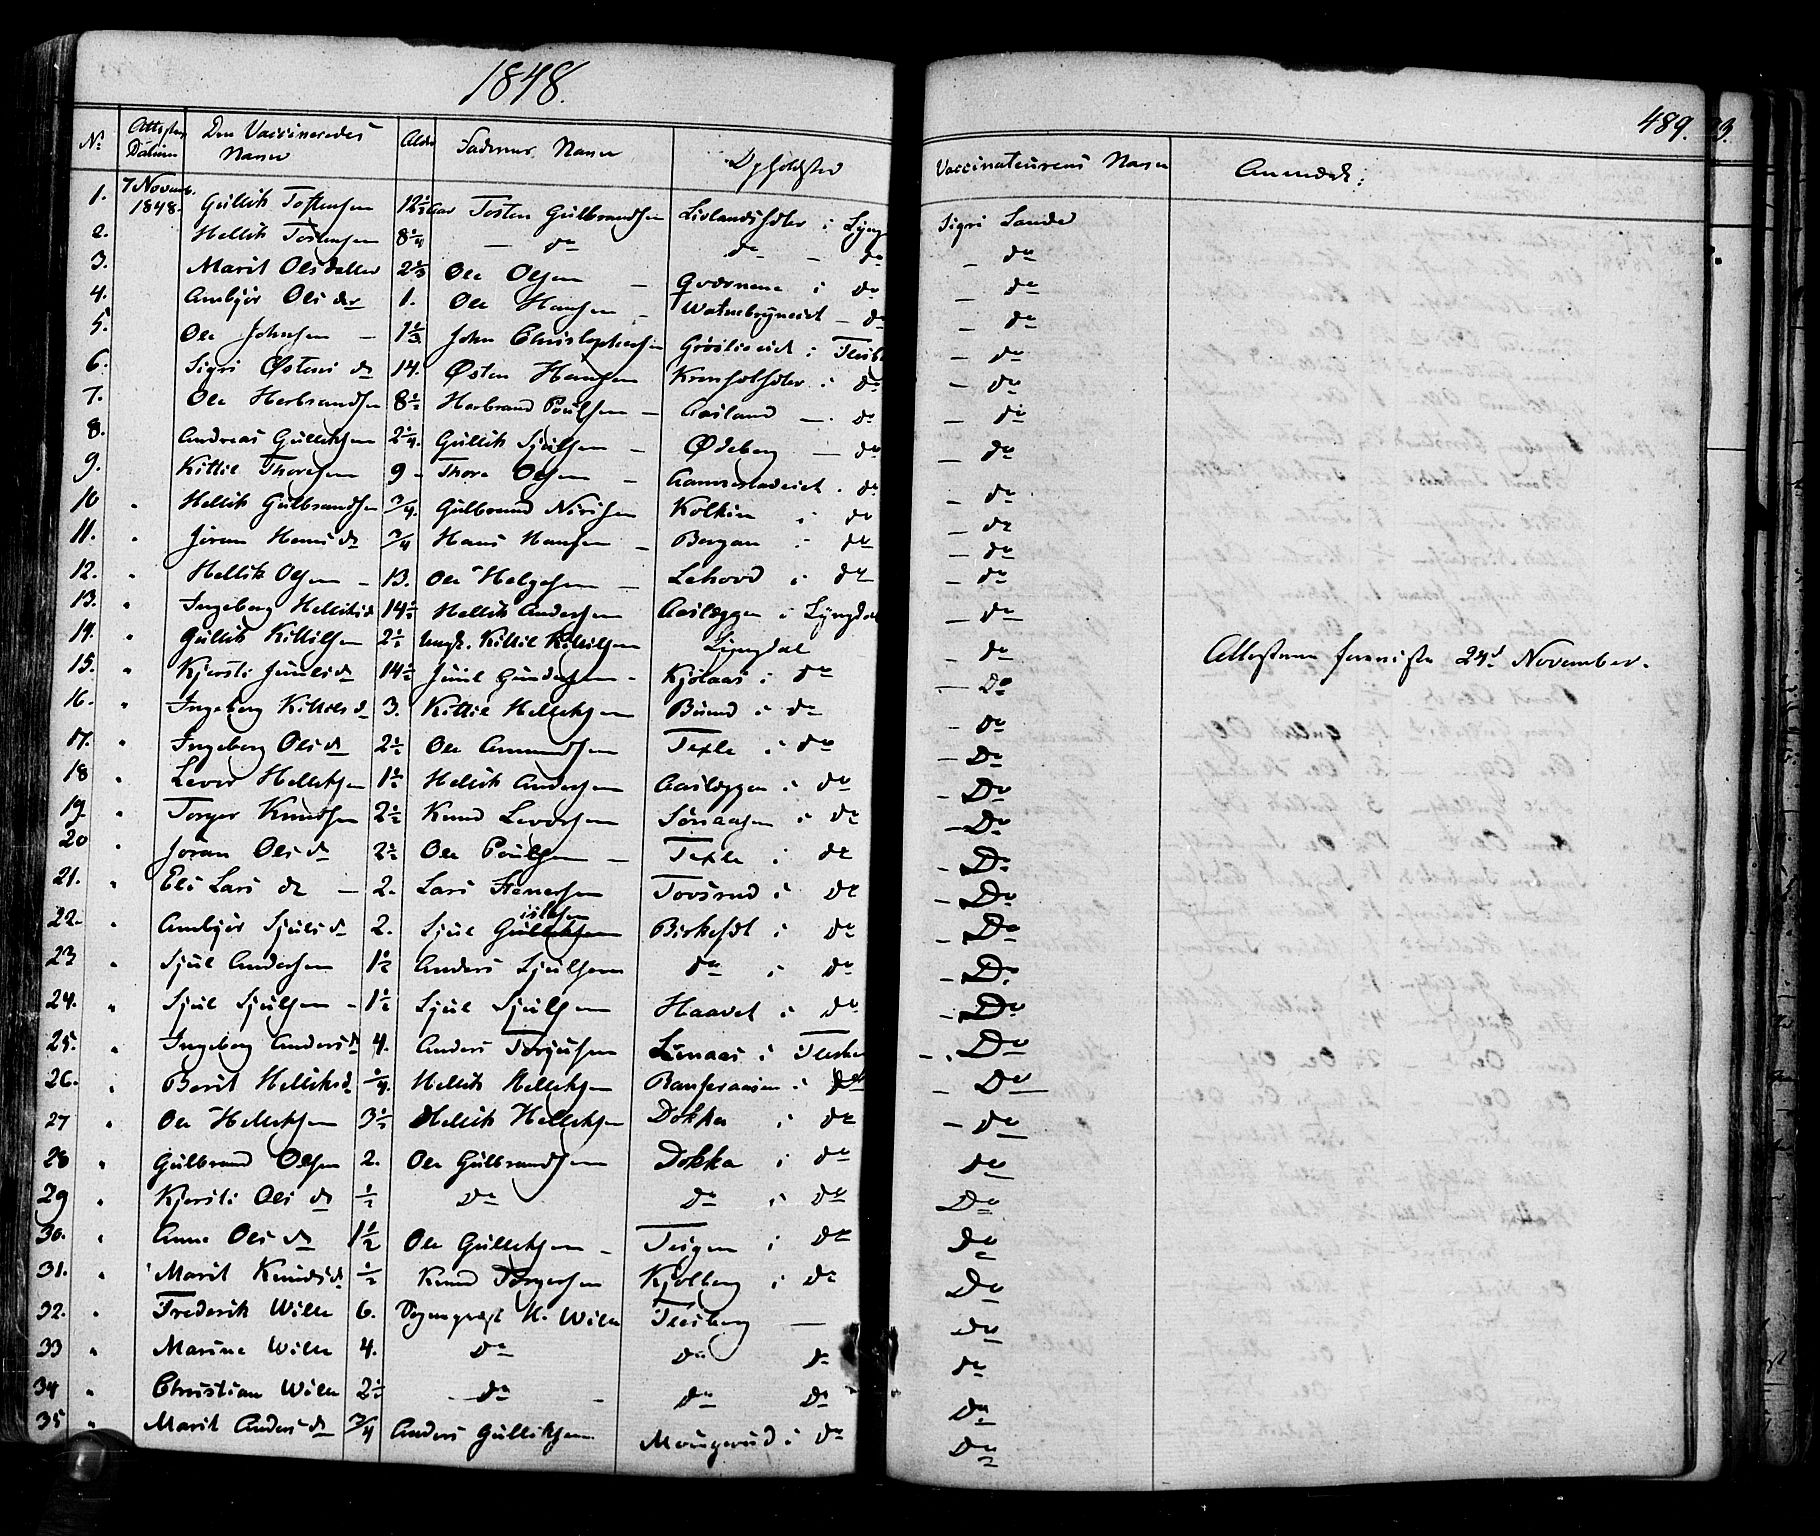 1848.
489.
No Attestens Datum Den Vaccineredes Navn Alder Faderens Navn Opholdsted Vaccinateurens Navn Anmærk:
1. 7 Novemb. 1848. Gullik Tostensen 12½ Aar Tosten Gulbrandsen i Lyngd Sigri Lande
2. Hellik Tostensen 8¼ — do do — do — do
3. Marit Olsdatter 2⅔ Ole Olsen — Qværnene i do — do
4. Ambjør Ols der 1. Ole Hansen — — do — do
5. Ole Johnsen — 1⅓ John Christophersen i Flesb — do
6. Sigri Østens d 14. Østen Hansen i do — do
7. Ole Herbrandsen 8½ Herbrand Poulsen — Aasland — do — do
8. Andreas Gulliksen 2¼. Gullik Sjulsen — Ødeberg — do — do
9. Kittil Thoresen 9 - Thore Olsen — do — do
10 " Hellik Gulbrandsen ¾. Gulbrand Nirisen Kolkin i do — do
11. " Jøran Hans d ¾ Hans Hansen — Bergan i do — do
12. " Hellik Olsen — 13. Ole Helgesen — Lehovd i do — do
13. " Ingeborg Helliks d 14½ Hellik Andersen Aaslæggen i Lyngdal — do
14. " Gullik Kittilsen 2½ Ungk. Kittil Kittilsen Lyngdal — do
Attesterne 24d November.
15. " Kjersti Juuls d 14½ Juul Gundersen - Kjølaas i do — Do
16. " Ingeborg Kittils d 3. Kittil Helliksen Buind i do — Do
17. " Ingeborg Ols d 2½ Ole Amundsen Texle i do — Do
18 " Lever Helliksen 1½ Hellik Andersen Aaslæggen i do — Do
19. " Torger Knudsen 2½ Knud Leversen Sønaasen i do — Do
20 " Jøran Ols d 2½ Ole Poulsen — Texle i do — Do
21. " Eli Lars d — 2. Lars Steenersen Tovsrud i do — Do
22. " Ambjør Sjuls d 2. Sjul Gulliksen islesen Birkesdt i do — Do
23 " Sjul Andersen 1½ Anders Sjulsen do i do — Do
24. " Sjul Sjulsen - 1½ Sjul Sjulsen Haavet i do — Do
25. " Ingeborg Anders d 4. Anders Torjusen Lienaas i Flesbe — Do
26. " Berit Helliks d ¼. Hellik Helliksen i do — Do
27 " Ole Helliksen 3½ Hellik Helliksen Dokka i do — do
28 " Gulbrand Olsen 2. Ole Gulbrandsen Dokka i do do
29 " Kjersti Ols d ½ Do do i do Do
30. " Anne Ols d 1½ Ole Gulliksen - Teigen i do do
31. " Marit Knuds d ½ Knud Torgersen Kjølberg i do Do
32. " Frederik Wille 6. Sogneprest H. Wille Flesberg — Do
33 " Marine Wille 4. Do do do do
34 " Christian Wille 2½ — do - do do Do
35 " Marit Anders d ¾ Anders Gulliksen Mougerud i do Do